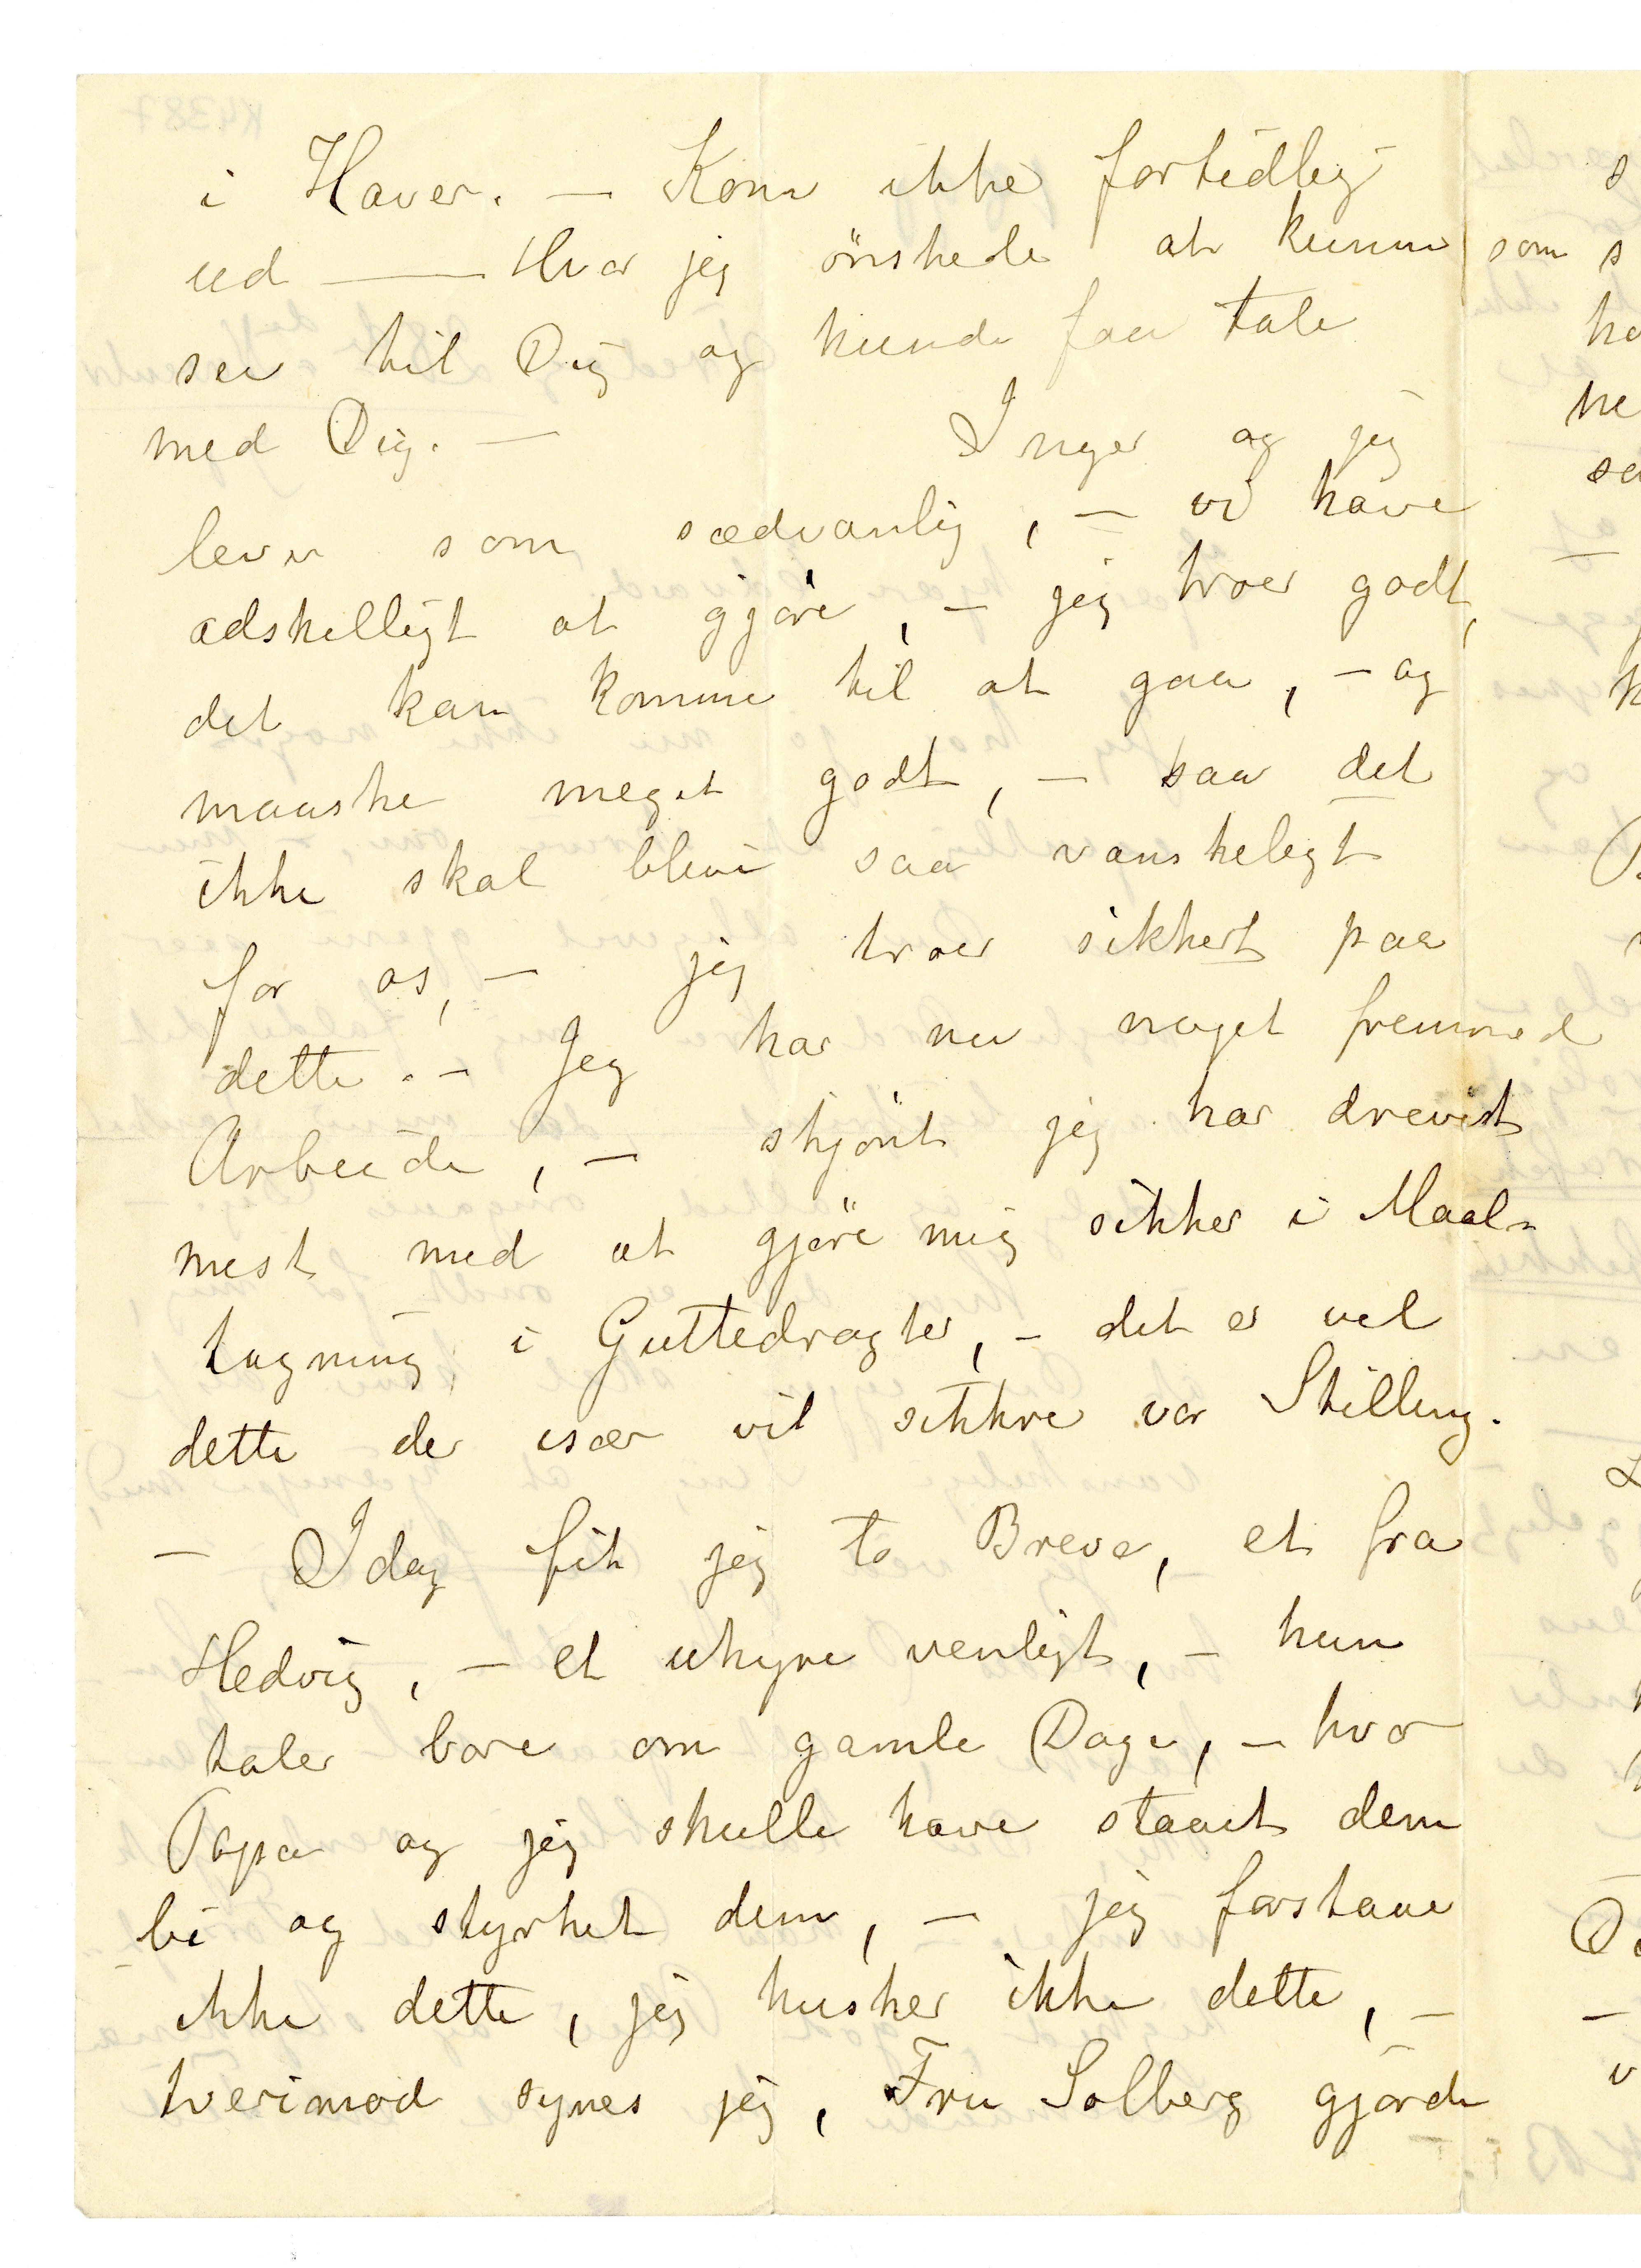 i Haver. — Kom ikke fortidlig
ud —— Hvor jeg önskede at kunne
see til Dig og kunde faa tale
med Dig. —
Inger og jeg
lever som sædvanlig, — vi have
adskelligt at gjöre, — jeg troer godt,
det kan komme til at gaa, — og
maaske meget godt, — saa det
ikke skal blive saa vanskeligt
for os, — jeg troer sikkert paa
dette. — Jeg har nu noget fremmed
Arbeide, — skjönt jeg har drevet
mest med at gjöre mig sikker i Maal-
tagning i Guttedragter, — det er vel
dette der især vil sikkre vor Stilling.
— Idag fik jeg to Breve, et fra
Hedvig, — et uhyre venligt, — hun
taler bare om gamle Dage, — hvor
Papa og jeg skulle have staaet dem
bi og styrket dem, — jeg forstaae
ikke dette, jeg husker ikke dette, —
tverimod synes jeg, Fru Solberg gjorde
som